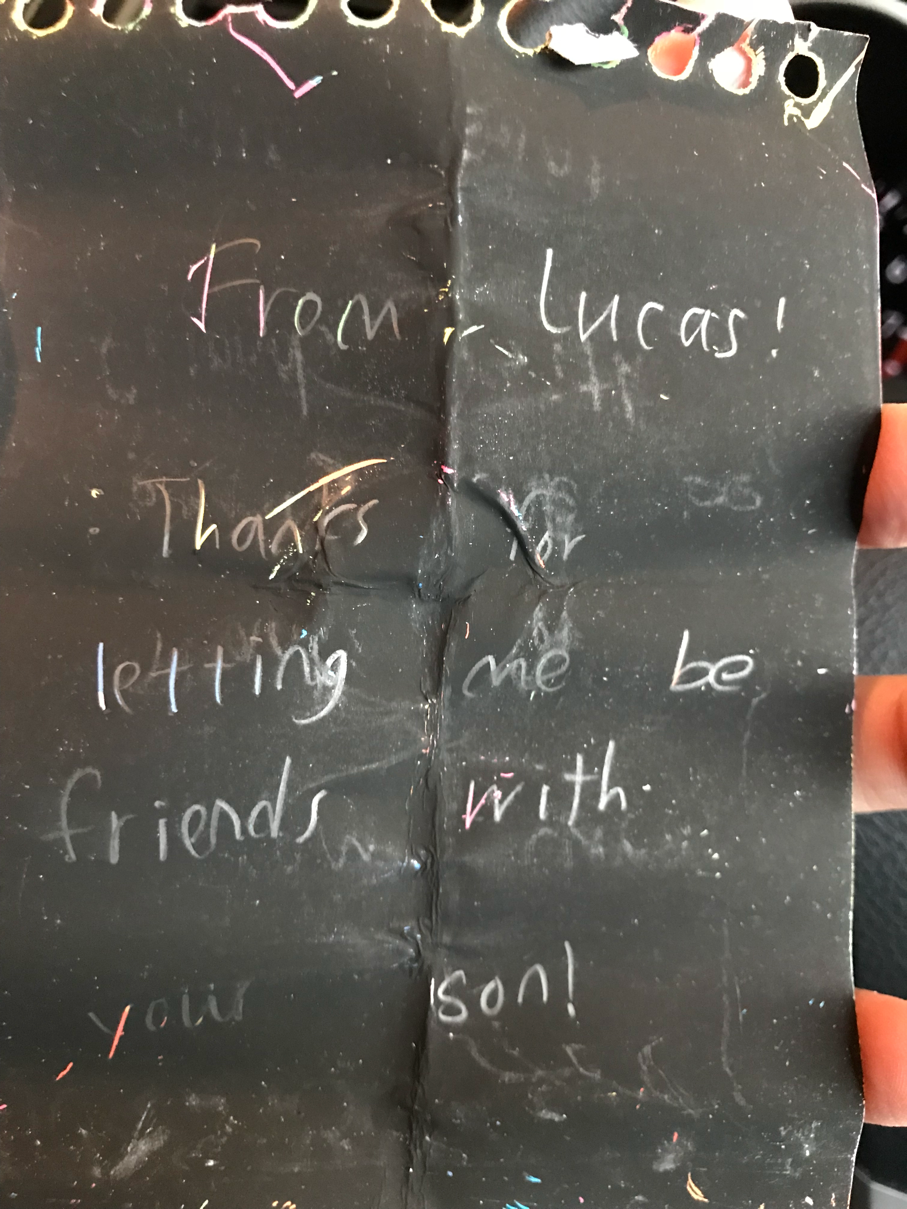 From Lucas!
Thanks for
letting me be
friends with
your son!